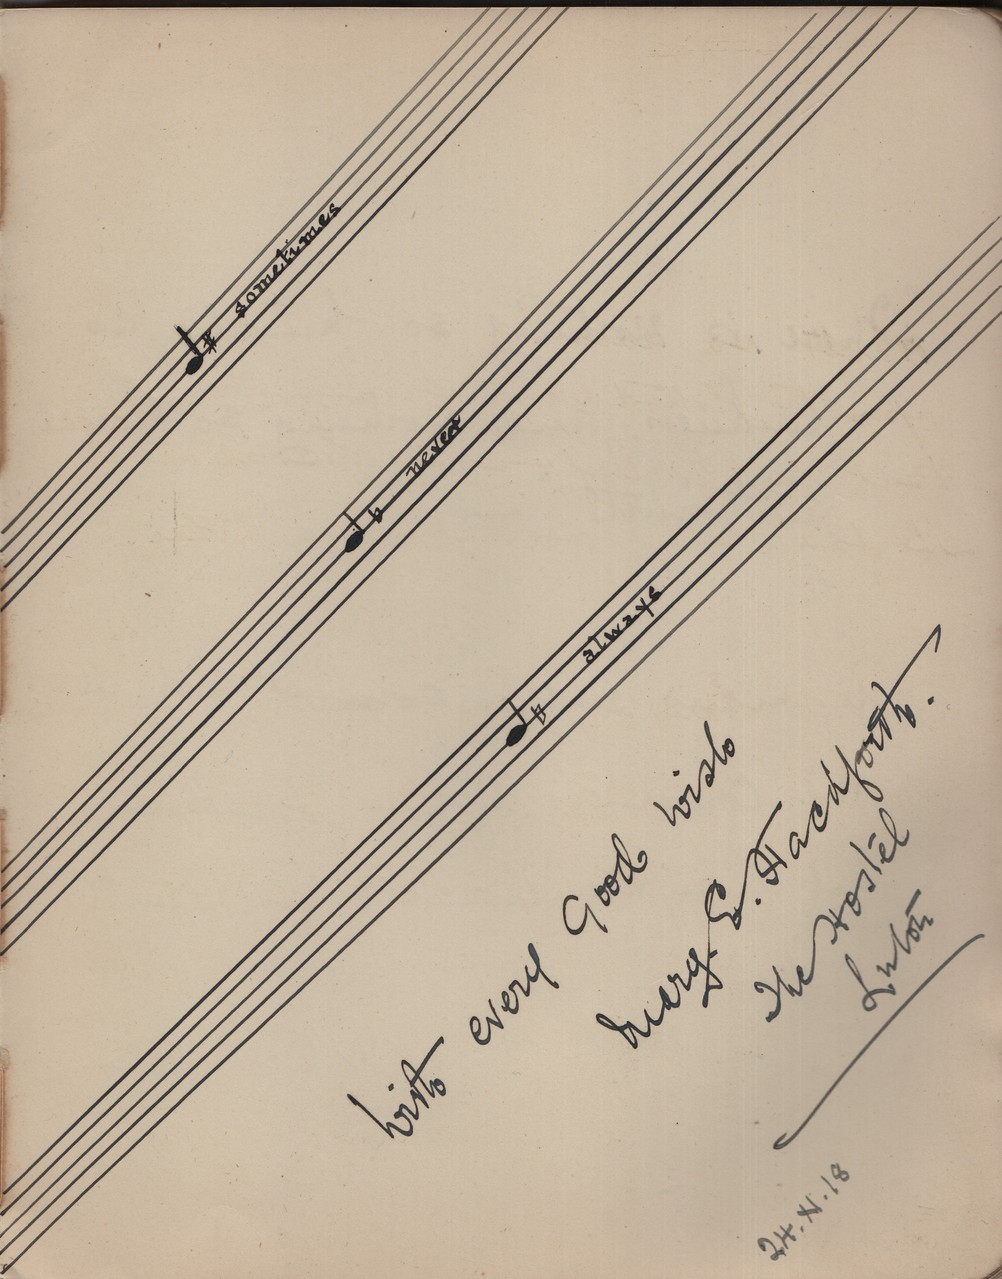 sometimes
never
always
With every Good wish
Mary E. Hackforth.
The Hostel
Luton
24.XI.18